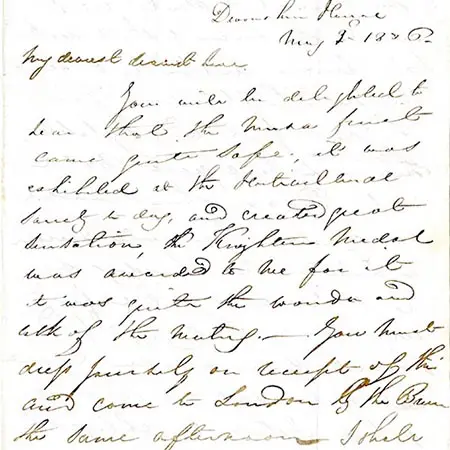 Devonshire House
May 3 1836
My dearest dearest love.
You will be delighted to
hear that the Musa fruit
came quite safe, it was
exhibited at the Horticultural
Society to day, and created great
sensation, the Knightian Medal
was awarded to me for it
it was quite the wonder and
talk of the meeting. — You must
dress yourself on receipt of this
and come to London by the
the same afternoon I shall